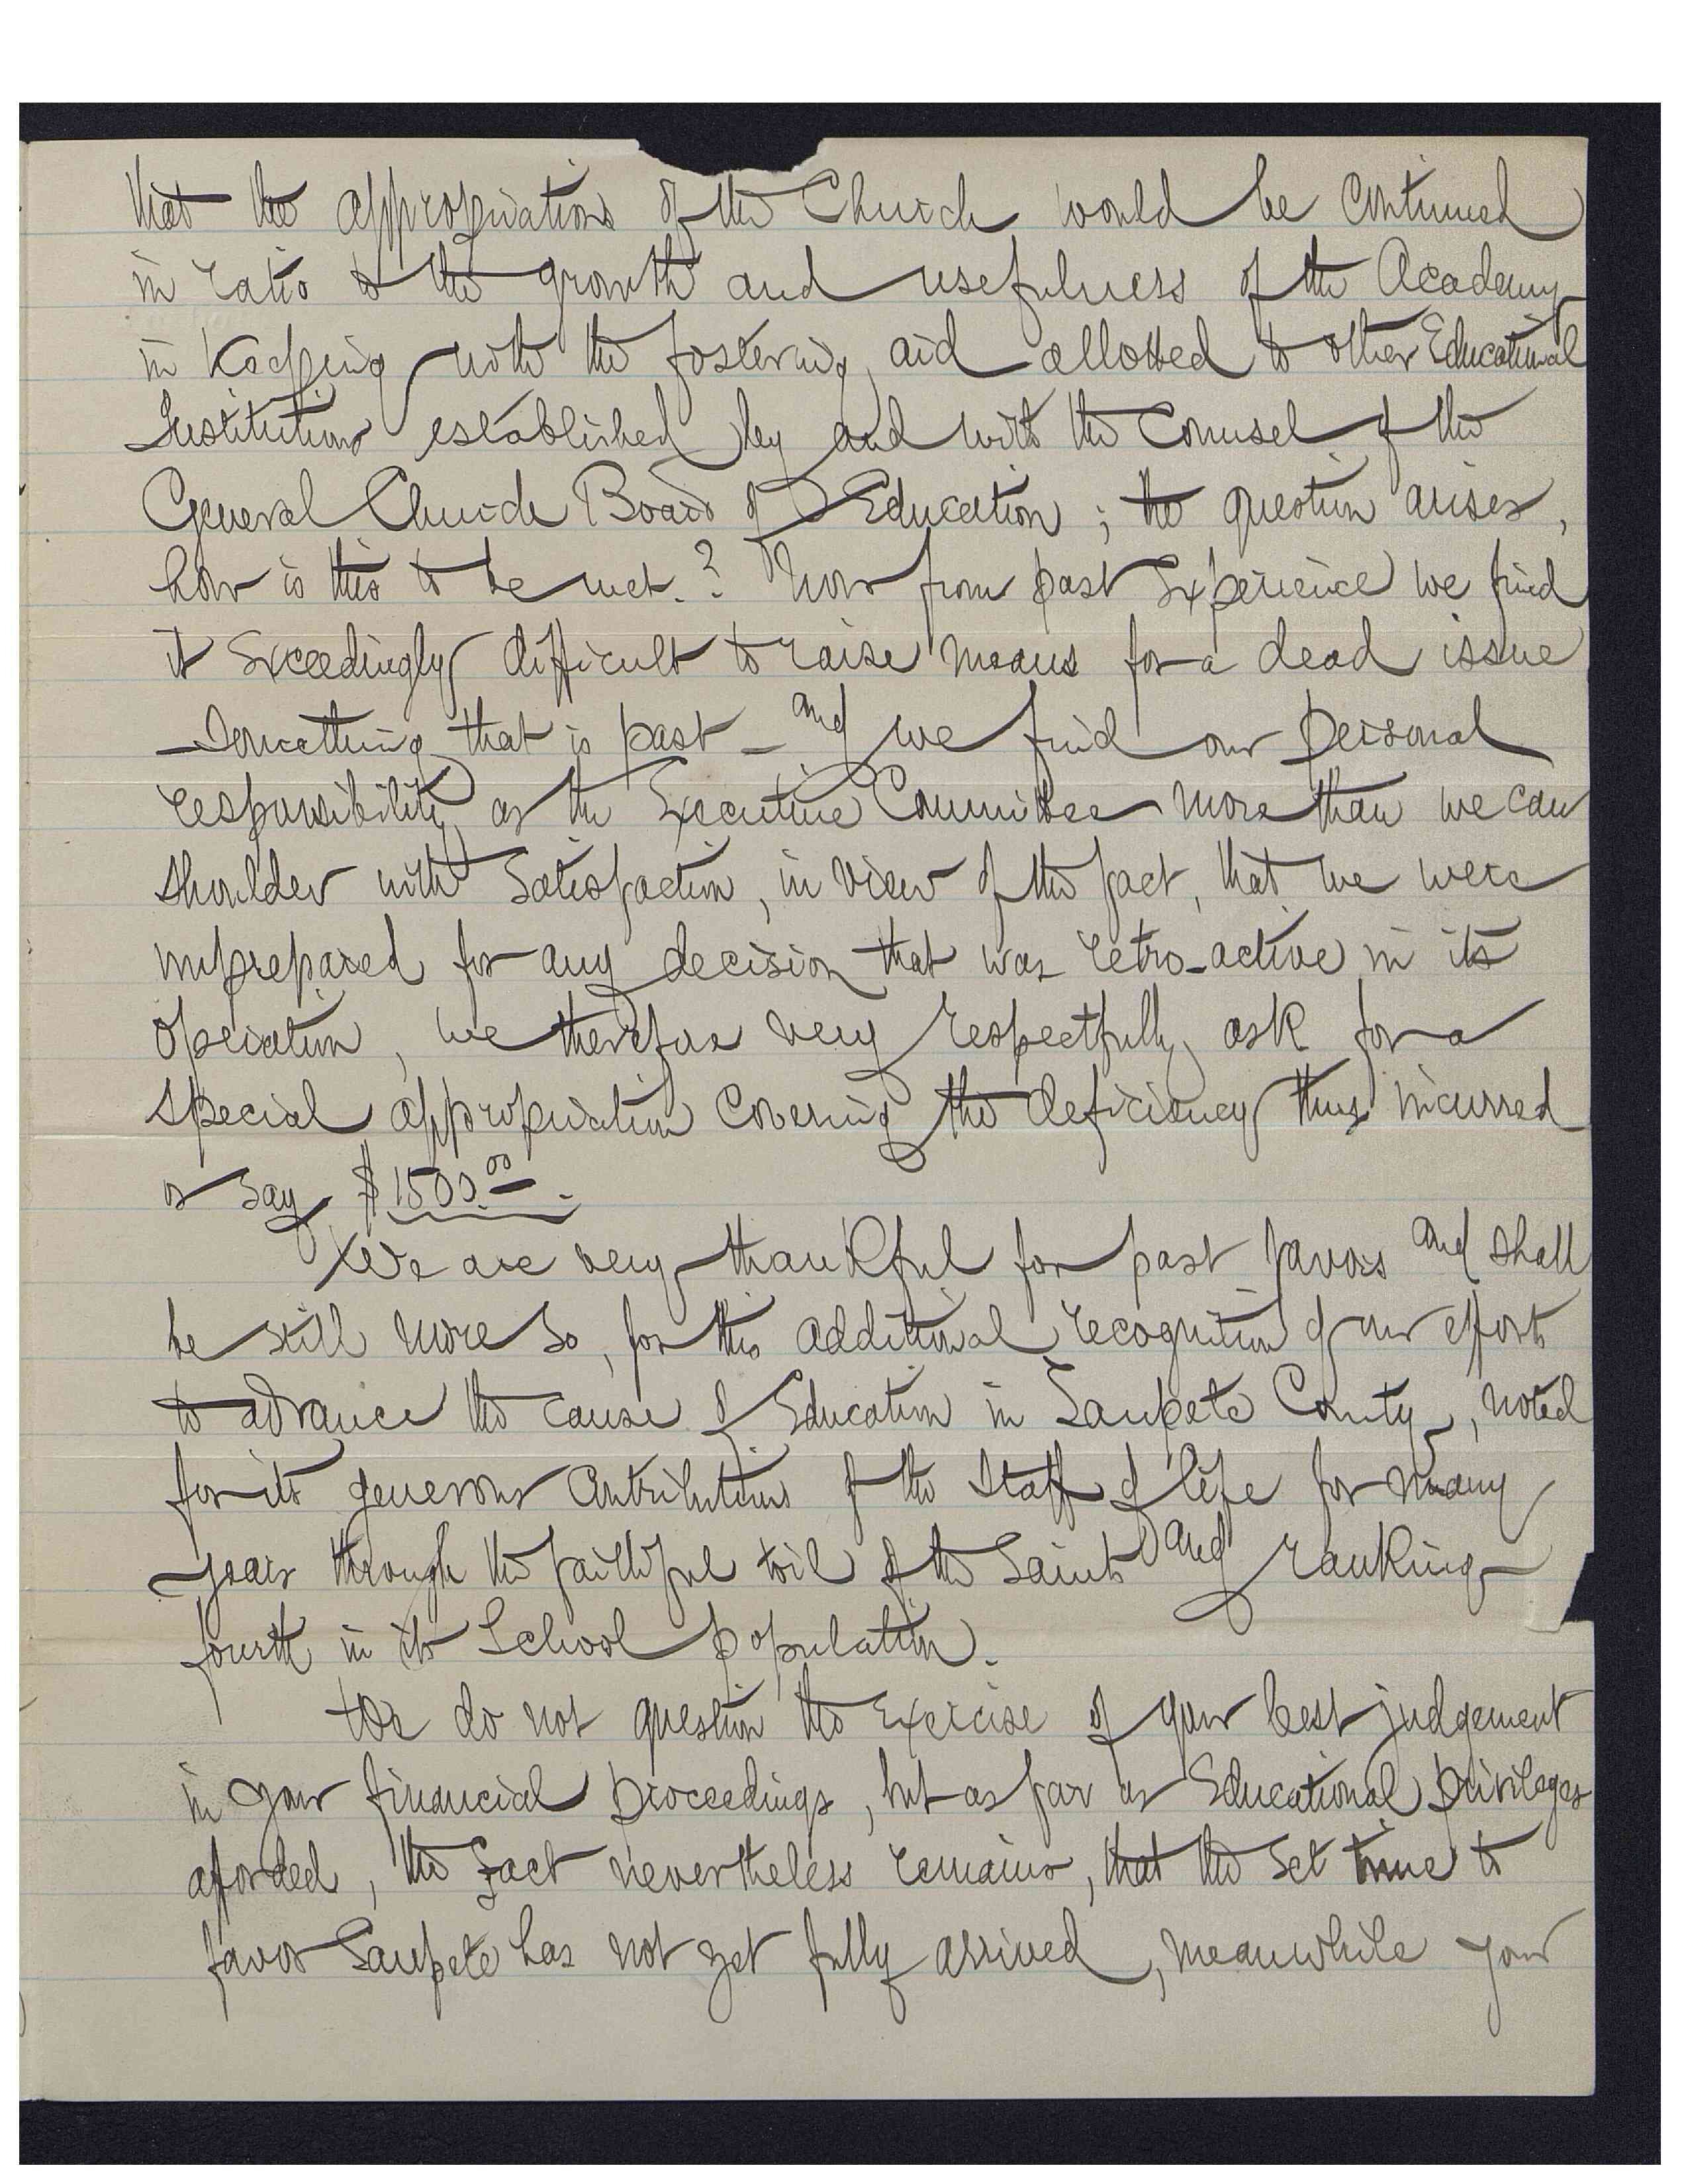 that the appropriations of the Church would be continued
in ratio to the growth and usefulness of the Academy
in keeping with the fostering aid allotted to other Educational
Institutions established by and with the Counsel of the
General Church Board of Education; the question arises,
how is this to be met.? Now from past Experience we find
it Exceedingly difficult to raise means for a dead issue
— Something that is past — and we find our personal
responsibility as the Executive Committee more than we can
shoulder with Satisfaction, in view of the fact, that we were
unprepared for any decision that was retro-active in its
Operation, we therefore very respectfully ask for a
Special appropriation Covering the deficiency thus incurred
or Say $1500.00.
We are very thankful for past favors and shall
be still more so, for this additional recognition of our efforts
to advance the cause of Education in Sanpete County, noted
for its generous Contributions of the Staff of life for many
years through the faithful toil of the Saints and ranking
fourth in its School population.
We do not question the Exercise of your best judgement
in your financial proceedings, but as far as Educational privileges
aforded, the fact nevertheless remains, that the set time to
favor Sanpete has not yet fully arrived, meanwhile your